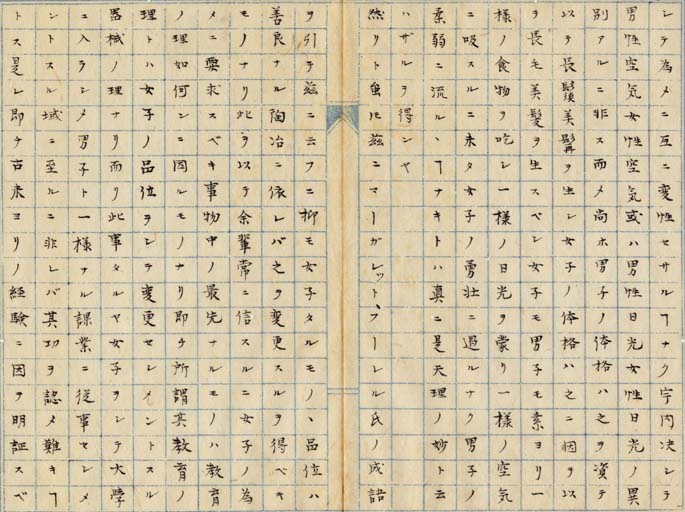 シテ為メニ互ニ変性セサルヿナク宇内决シテ
男性空気女性空気或ハ男性日光女性日光ノ異
別アルニ非ス而メ尚ホ男子ノ体格ハ之ヲ資テ
以テ長鬚美髯ヲ生シ女子ノ体格ハ之ニ因ヲ以
テ畏モ美髪ヲ生スベシ女子モ男子モ素ヨリ一
様ノ食物ヲ吃シ一様ノ日光ヲ蒙リ一様ノ空気
ニ吸スルニ未タ女子ノ勇壮ニ過ルナク男子ノ
柔弱ニ流ルヽヿナキトハ真ニ是天理ノ妙ト云
ハザルヲ得ンヤ
然リト虽𪜈茲ニマーガレット、フーレル氏ノ成語
ヲ引テ茲ニ云フニ抑モ女子タルモノヽ品位ハ
善良ナル陶冶ニ依レバ之ヲ変更スルヲ得ベキ
モノナリ此ヲ以テ余輩常ニ信スルニ女子ノ為
メニ要求スベキ事物中ノ最先ナルモノハ教育
ノ理如何ンニ因ルモノナリ即チ所謂其教育ノ
理トハ女子ノ品位ヲシテ変更セシメントスル
器械ノ理ナリ而リ此事タルヤ女子ヲシテ大学
ニ入ラシメ男子ト一様ナル課業ニ従事セシメ
ントスル域ニ至ルニ非レバ其功ヲ認メ難キヿ
トス是レ即チ古来ヨリノ経験ニ因ヲ明証スベ